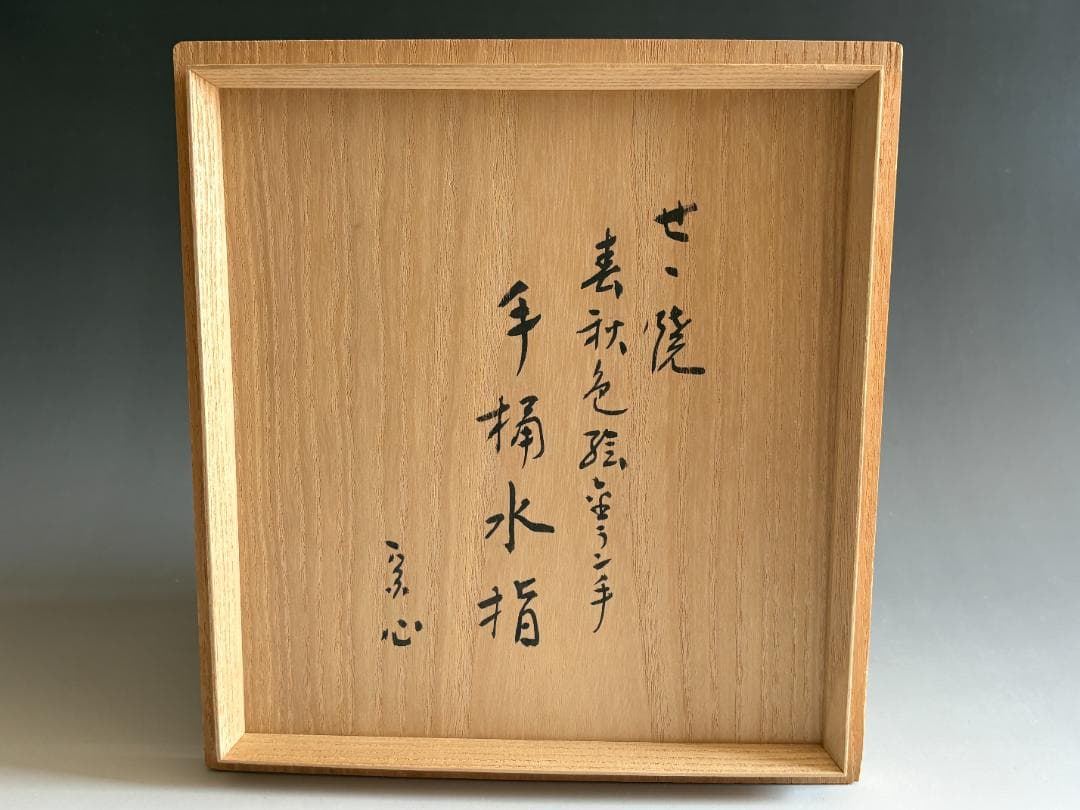 せゝ焼
春秋色絵金ラン手
手桶水指
心